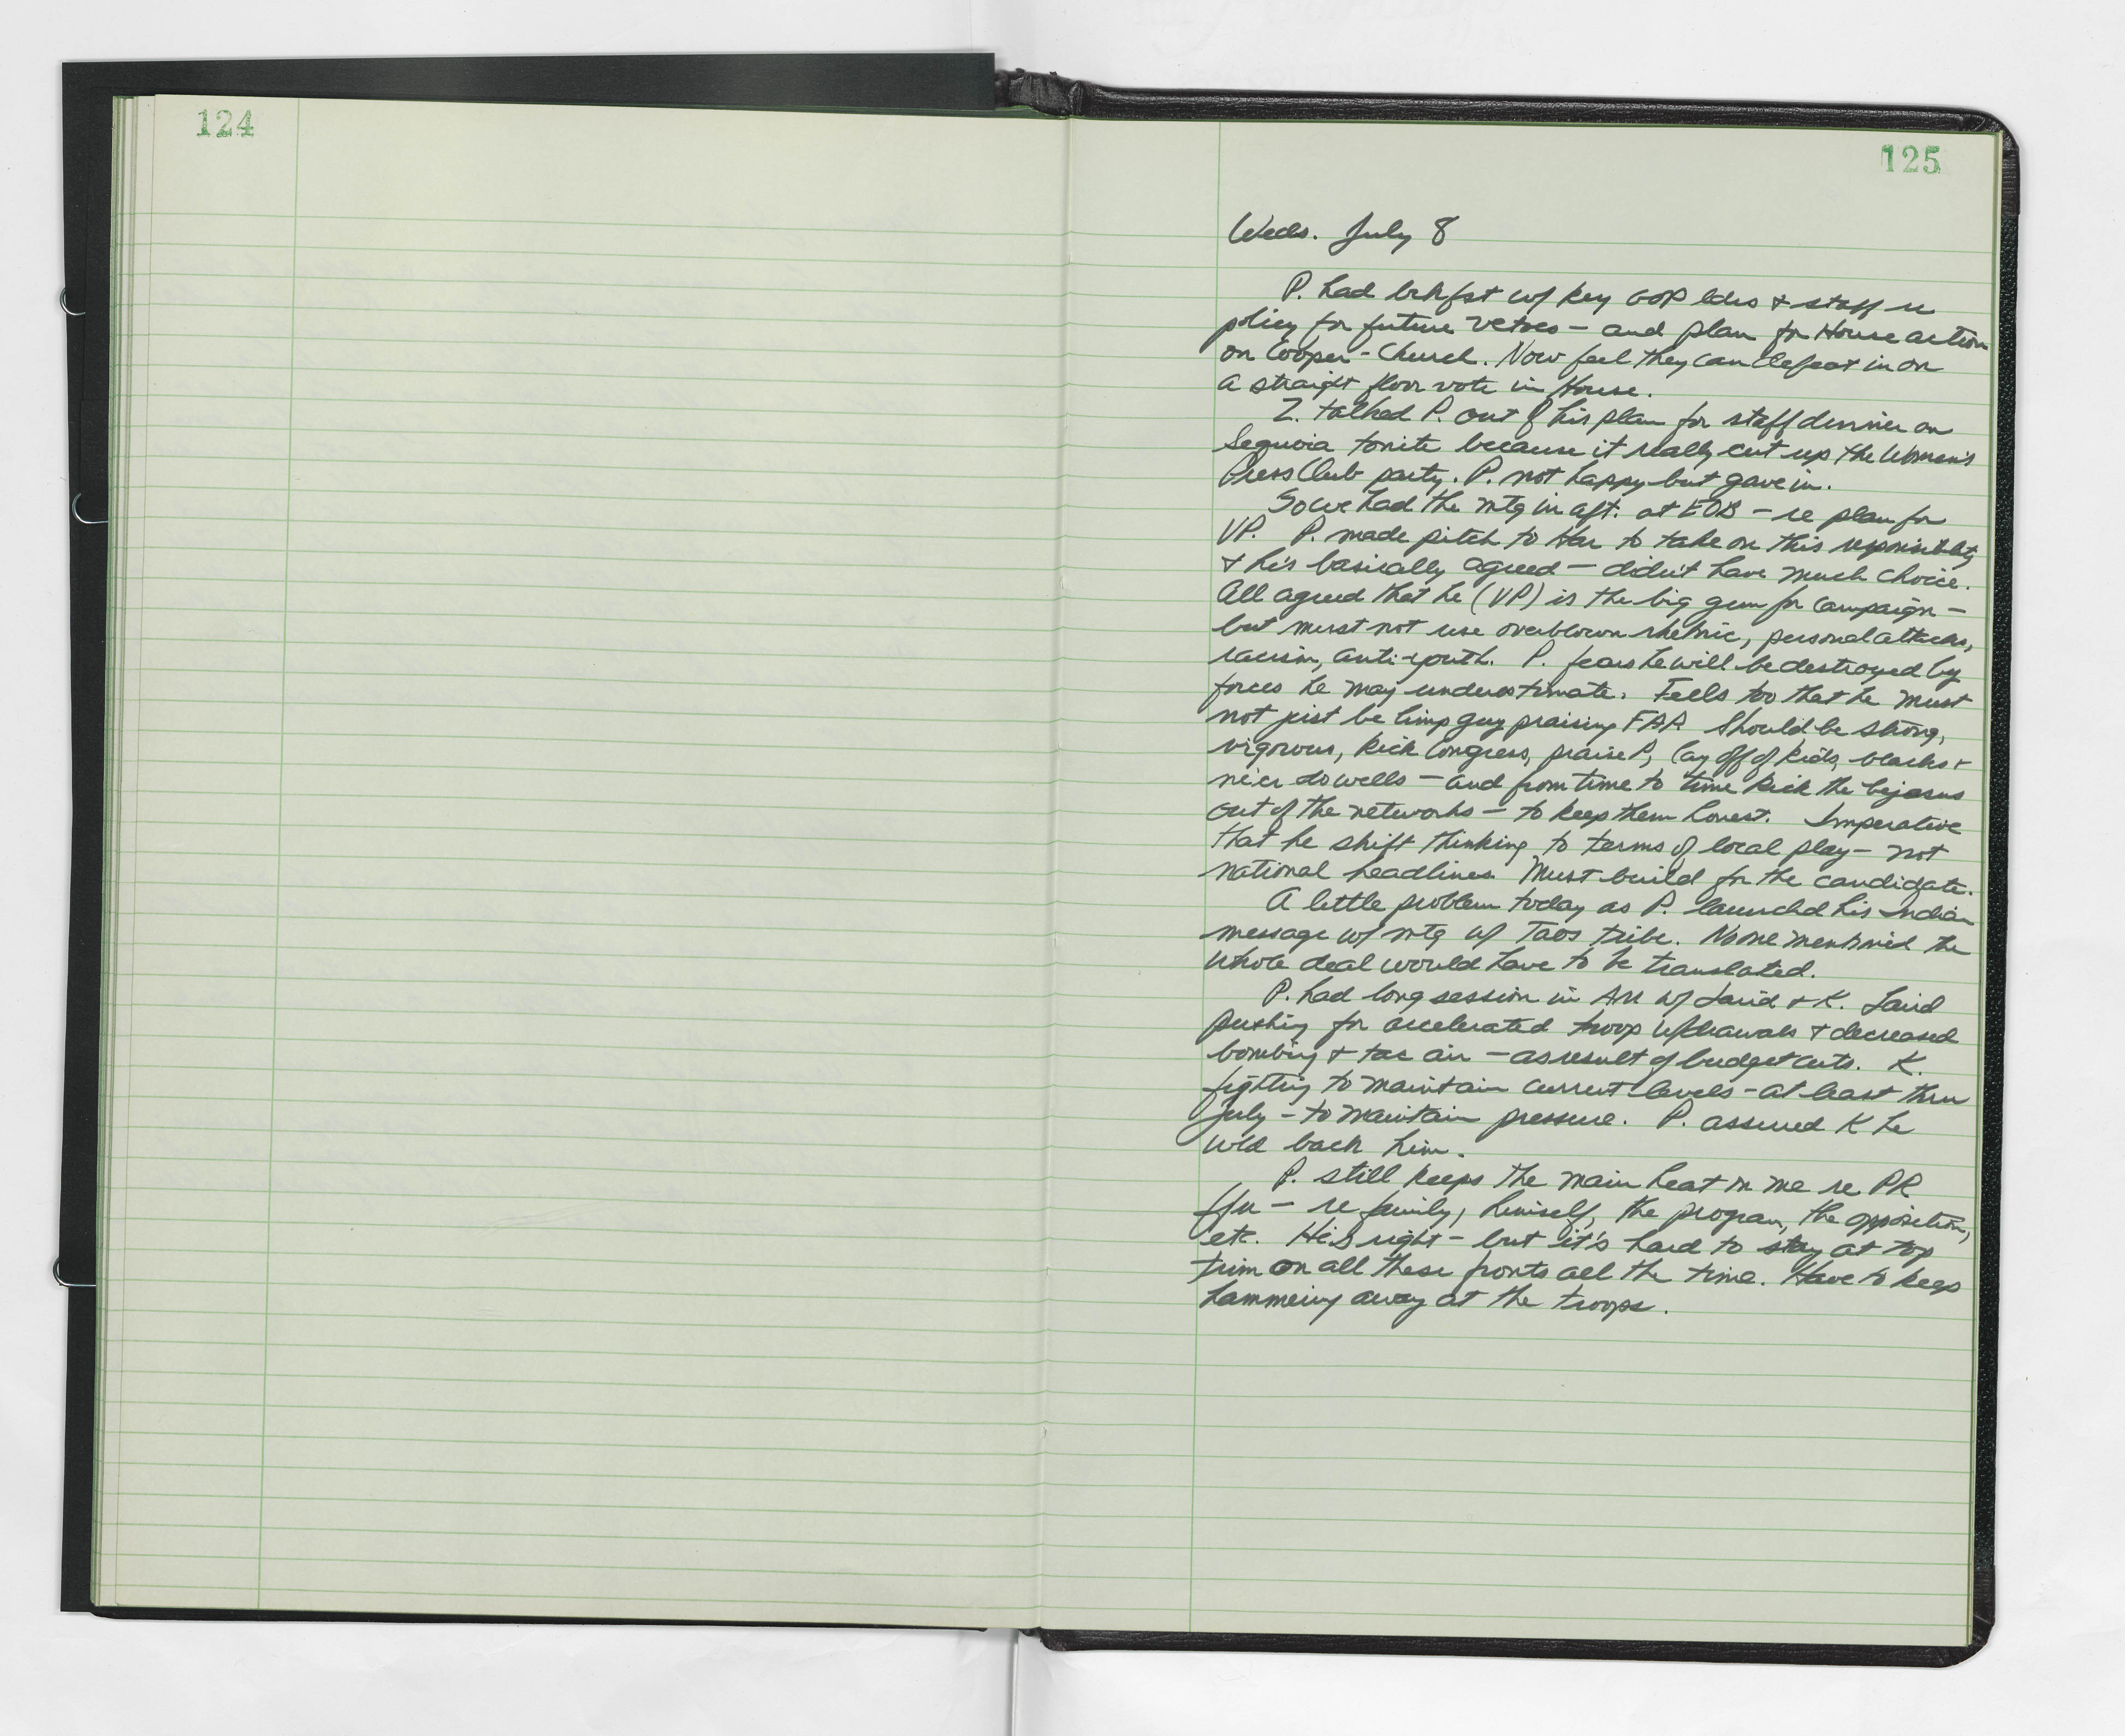 124
125
Weds. July 8
P. had brkfst w/ key GOP ldrs & staff re
policy for future vetoes - and plan for House action
on Cooper-Church. Now feel they can defeat in on
a straight floor vote in House.
Z. talked P. out of his plan for staff dinner on
Sequoia tonite because it really cut up the Women's
Press Club party. P. not happy but gave in.
So we had the mtg in aft. at EOB - re plan for
VP. P. made pitch to Har to take on this responsiblty
& he's basically agreed - didn't have much choice.
All agreed that he (VP) is the big gun for campaign -
but must not use overblown rhetoric, personal attacks,
racism, anti-youth. P. fears he will be destroyed by
forces he may underestimate. Feels too that he must
not just be limp guy praising FAA Should be strong,
vigorous, kick Congress, praise P, lay off of kids, blacks &
ne'er do wells - and from time to time kick the bejesus
out of the networks - to keep them honest. Imperative
that he shift thinking to terms of local play - not
national headlines. Must build for the candidate.
A little problem today as P. launched his Indian
message w/ mtg w/ Taos tribe. No one mentioned the
whole deal would have to be translated.
P. had long session in AM w/ Laird & K. Laird
pushing for accelerated troop w/drawals & decreased
bombing & tac air - as result of budget cuts. K.
fighting to maintain current levels - at least thru
July - to maintain pressure. P. assured K he
wld back him.
P. still keeps the main heat on me re PR
- re family, himself, the program, the opposition,
etc. He's right - but it's hard to stay at top
trim on all these fronts all the time. Have to keep
hammering away at the troops.